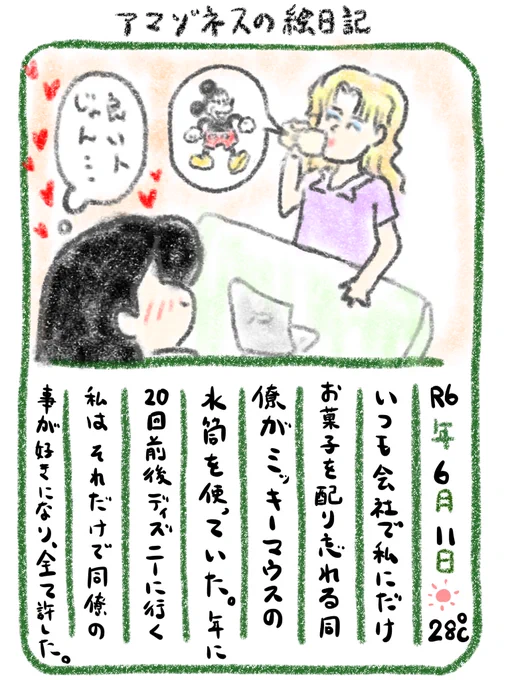 アマゾネスの絵日記
良い人
じゃん…
R6年6月11日 28℃
いつも会社で私にだけ
お菓子を配り忘れる同
僚がミッキーマウスの
水筒を使っていた。年に
20回前後ディズニーに行く
私はそれだけで同僚の
事が好きになり、全て許した。